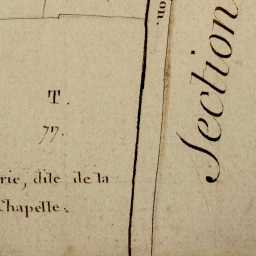 T.
77.
rie, dite de la
Chapelle.
on.
Section